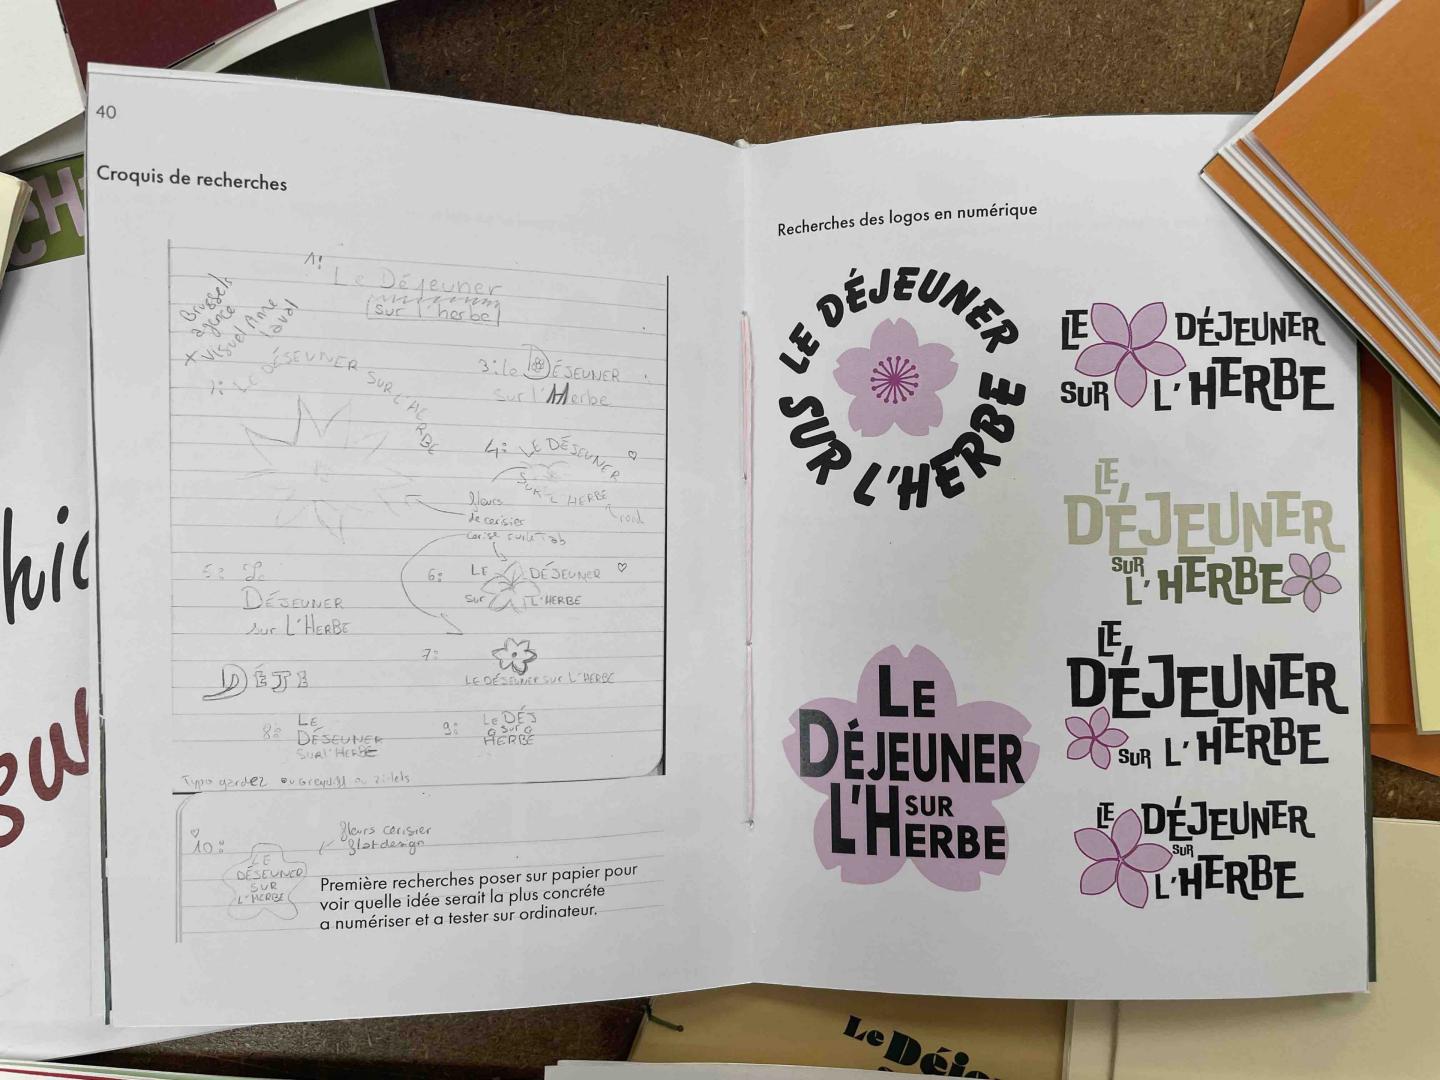 40
Croquis de recherches
1:
Le Déjeuner
sur l'herbe
Brussels
agence
x Visuel Anne
Laval
LE DÉJEUNER SUR L'HERBE
3: Le DÉJEUNER
sur l'Herbe
4: LE DÉJEUNER
SUR L'HERBE
rond
fleurs
de cerisier
5: Le
DÉJEUNER
sur L'HERBE
6: LE DÉJEUNER
SUR L'HERBE
DÉJE
7:
LE DÉJEUNER SUR L'HERBE
8: LE
DÉJEUNER
SUR L'HERBE
9: LE DÉJ
SUR
HERBE
Typo gardez
10:
LE
DÉJEUNER
SUR
L'HERBE
fleurs cerisier
flat design
Première recherches poser sur papier pour
voir quelle idée serait la plus concréte
a numériser et a tester sur ordinateur.
Recherches des logos en numérique
LE DÉJEUNER
SUR L'HERBE
LE DÉJEUNER
SUR L'HERBE
LE
DÉJEUNER
SUR
L'HERBE
LE
DÉJEUNER
L'H SUR
ERBE
LE
DÉJEUNER
SUR L'HERBE
LE DÉJEUNER
SUR
L'HERBE
Le Déje